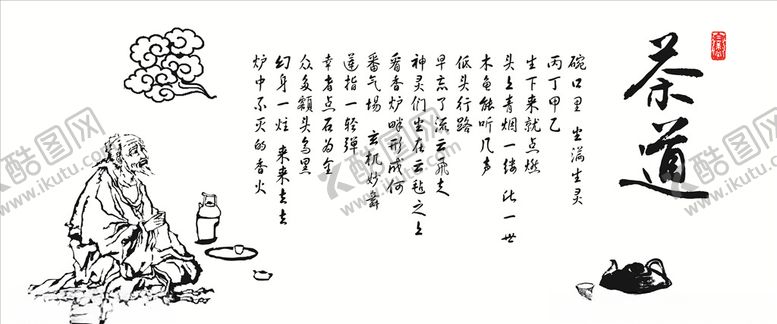 茶道
碗口里 坐满生灵
丙丁甲乙
生下来就点燃
头上青烟一缕 此一世
木鱼能听几声
低头行路
早忘了流云飞走
神灵们坐在云毡之上
看香炉畔形成何
番气场 玄机妙舞
莲指一轻弹
幸者点石为金
众多额头乌黑
幻身一炷 来来去去
炉中不灭的香火
酷图网
www.ikutu.com